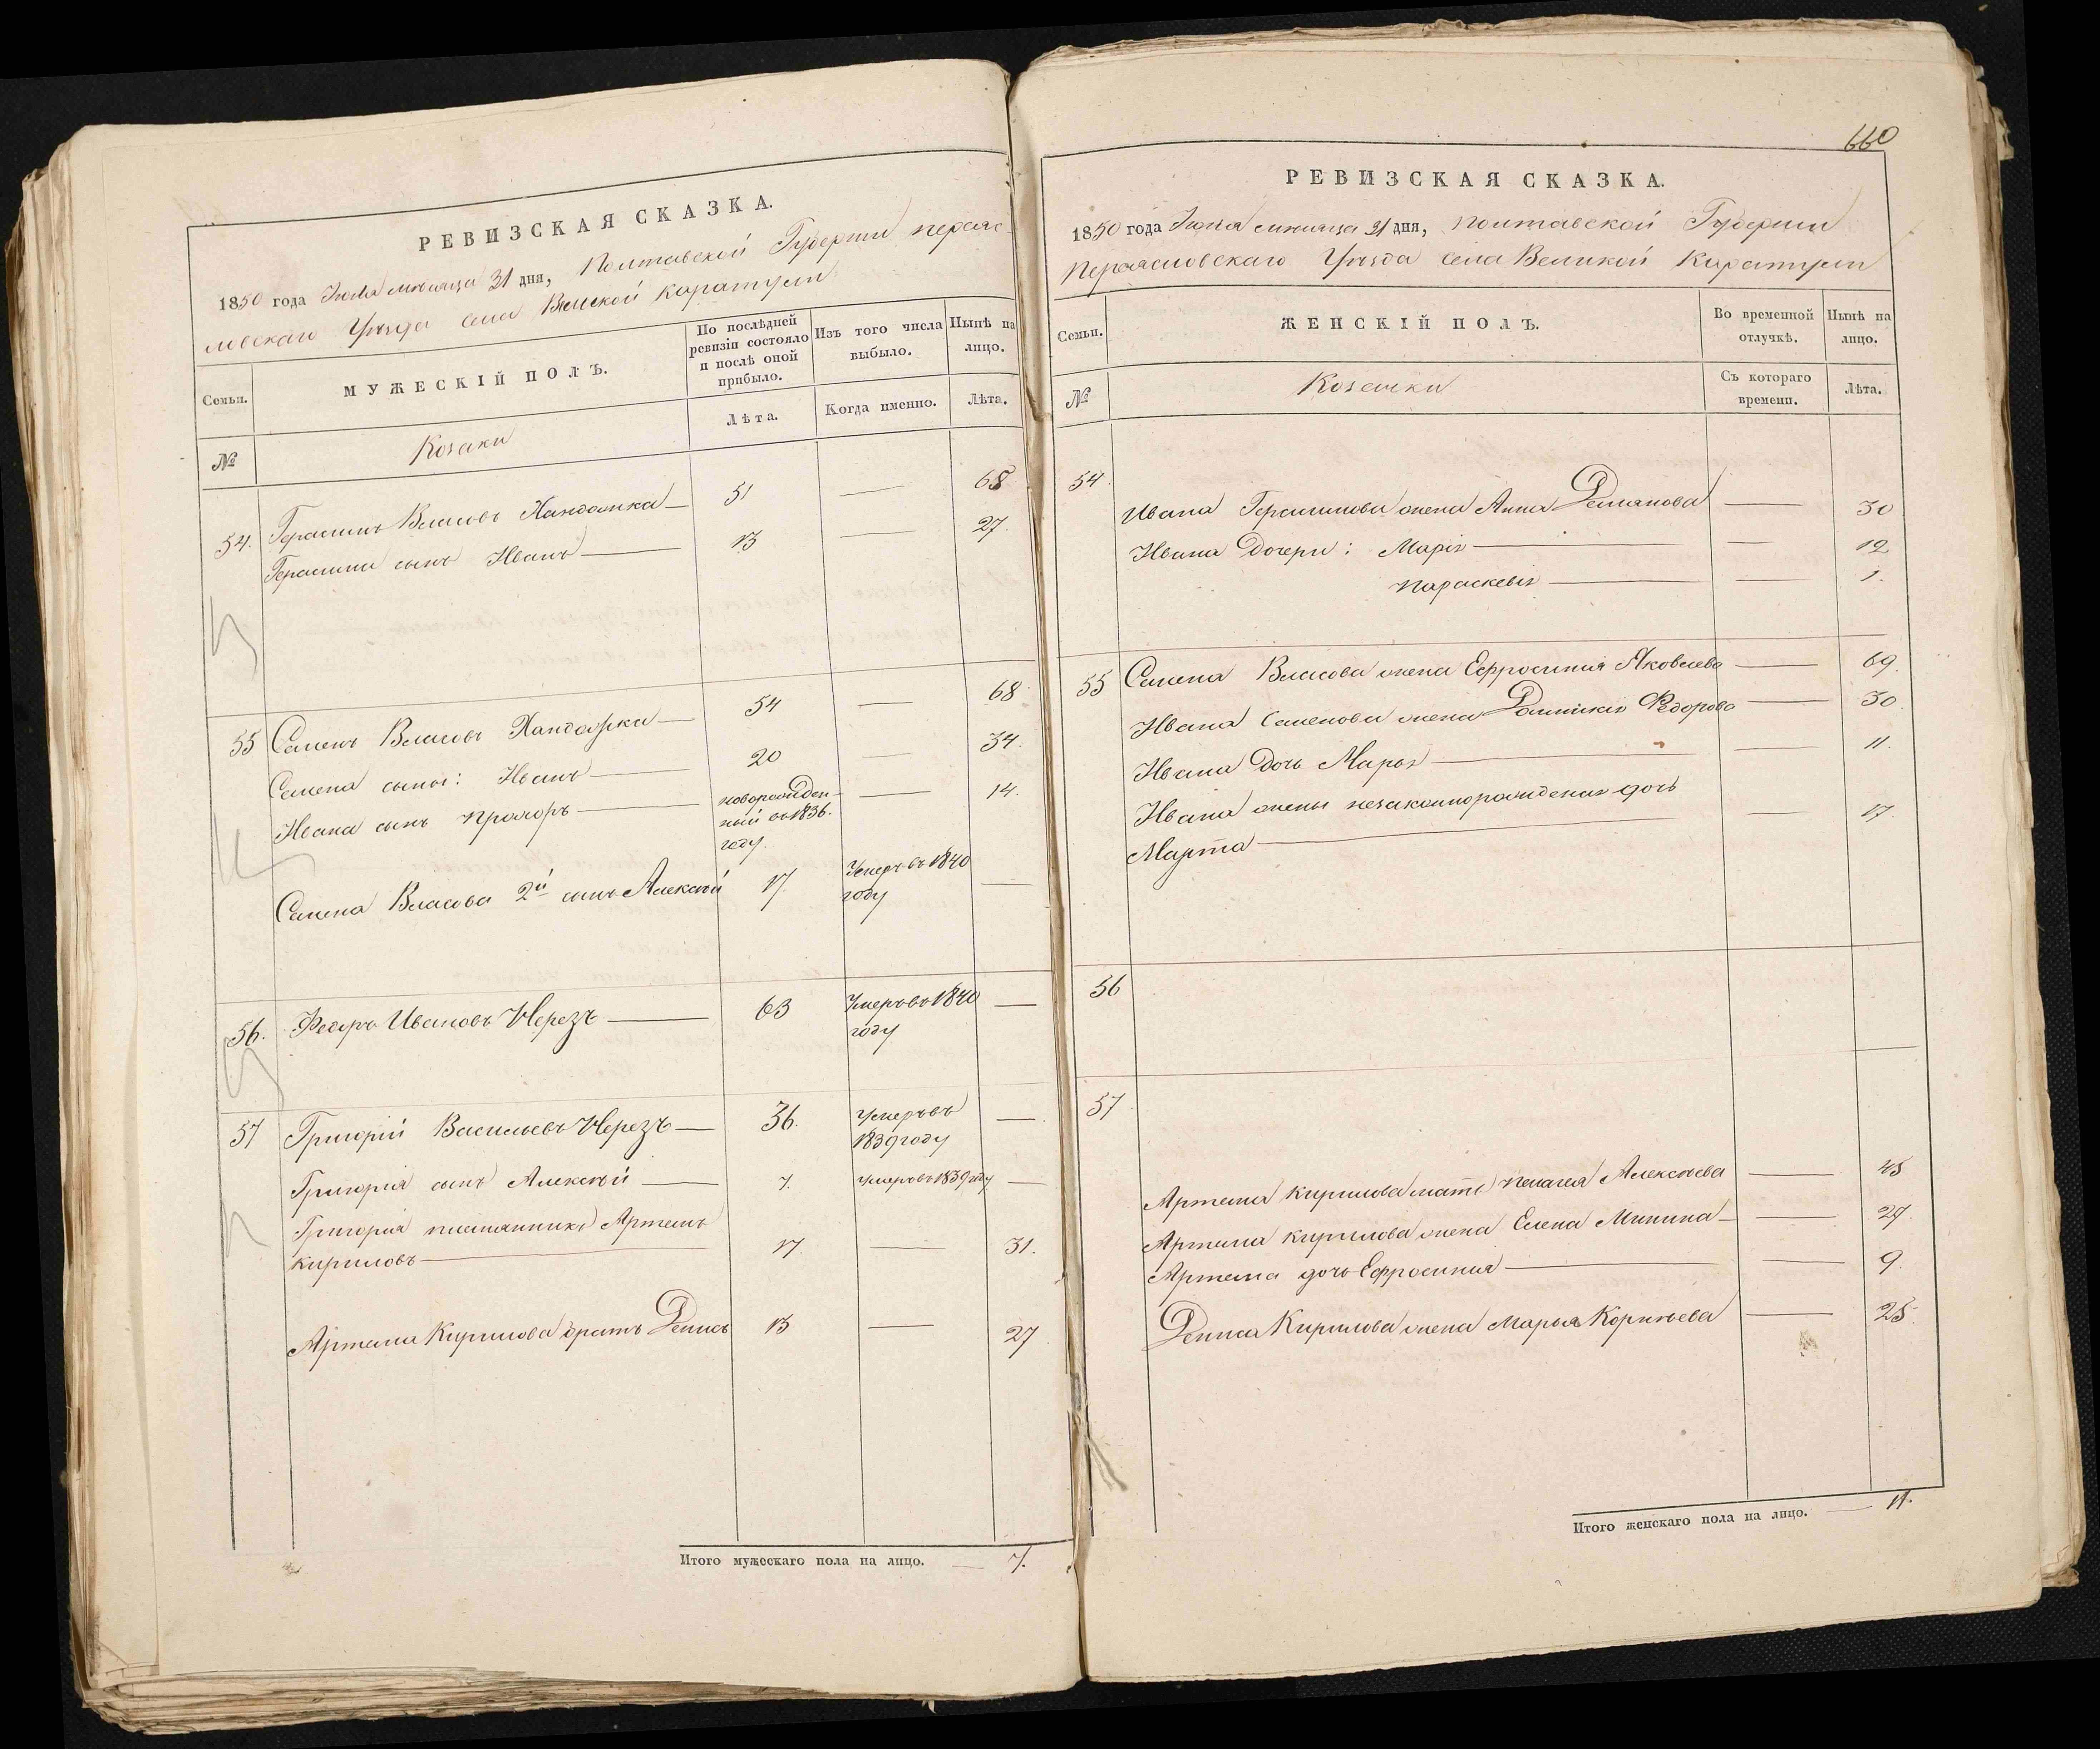 РЕВИЗСКАЯ СКАЗКА.
1850 года Июля мѣсяца 31 дня, Полтавской Губерніи переяс-
ловскаго Уѣзда села Великой Каратули
Семьи.
МУЖЕСКІЙ ПОЛЪ.
По послѣдней ревизіи состояло и послѣ оной прибыло.
Изъ того числа выбыло.
Нынѣ на лицо.
Лѣта.
Когда именно.
Лѣта.
№
Козаки
54. Герасимъ Власовъ Хандожка — 51 — 68
Герасима сынъ Иванъ — 13 — 27.
55 Семенъ Власовъ Хандожка — 54 — 68
Семена сыны: Иванъ — 20 — 34.
Ивана сынъ Прохоръ — новорожден-
ный въ 1836.
году. — 14.
Семена Власова 2й сынъ Алексѣй 17. Умеръ въ 1840
году —
56. Федоръ Ивановъ Черезъ — 63 Умеръ въ 1840
году —
57 Григорій Васильевъ Черезъ — 36. Умеръ въ
1839 году —
Григорія сынъ Алексѣй — 7. Умеръ въ 1839 году —
Григорія племянникъ Артемъ
Кириловъ — 17. — 31.
Артема Кирилова братъ Денисъ 13 — 27
Итого мужескаго пола на лицо. — 7.
660
РЕВИЗСКАЯ СКАЗКА.
1850 года Июля мѣсяца 31 дня, Полтавской Губерніи
Переясловскаго Уѣзда села Великой Каратули
Семьи.
ЖЕНСКІЙ ПОЛЪ.
Во временной отлучкѣ.
Нынѣ на лицо.
№
Козачки
Съ котораго времени.
Лѣта.
54.
Ивана Герасимова жена Анна Демянова — 30
Ивана Дочери: Марія — 12
Параскевія — 1.
55 Семена Власова жена Ефросинія Яковлева — 69.
Ивана Семенова жена Домникія Федорова — 30.
Ивана Дочь Марья — 11.
Ивана жены незаконорожденая дочь
Марта — 17.
56
57
Артема Кирилова мать Пелагея Алексѣева — 48
Артема Кирилова жена Елена Минина — 29.
Артема дочь Ефросинія — 9.
Дениса Кирилова жена Марья Корнѣева — 25.
Итого женскаго пола на лицо. — 11.